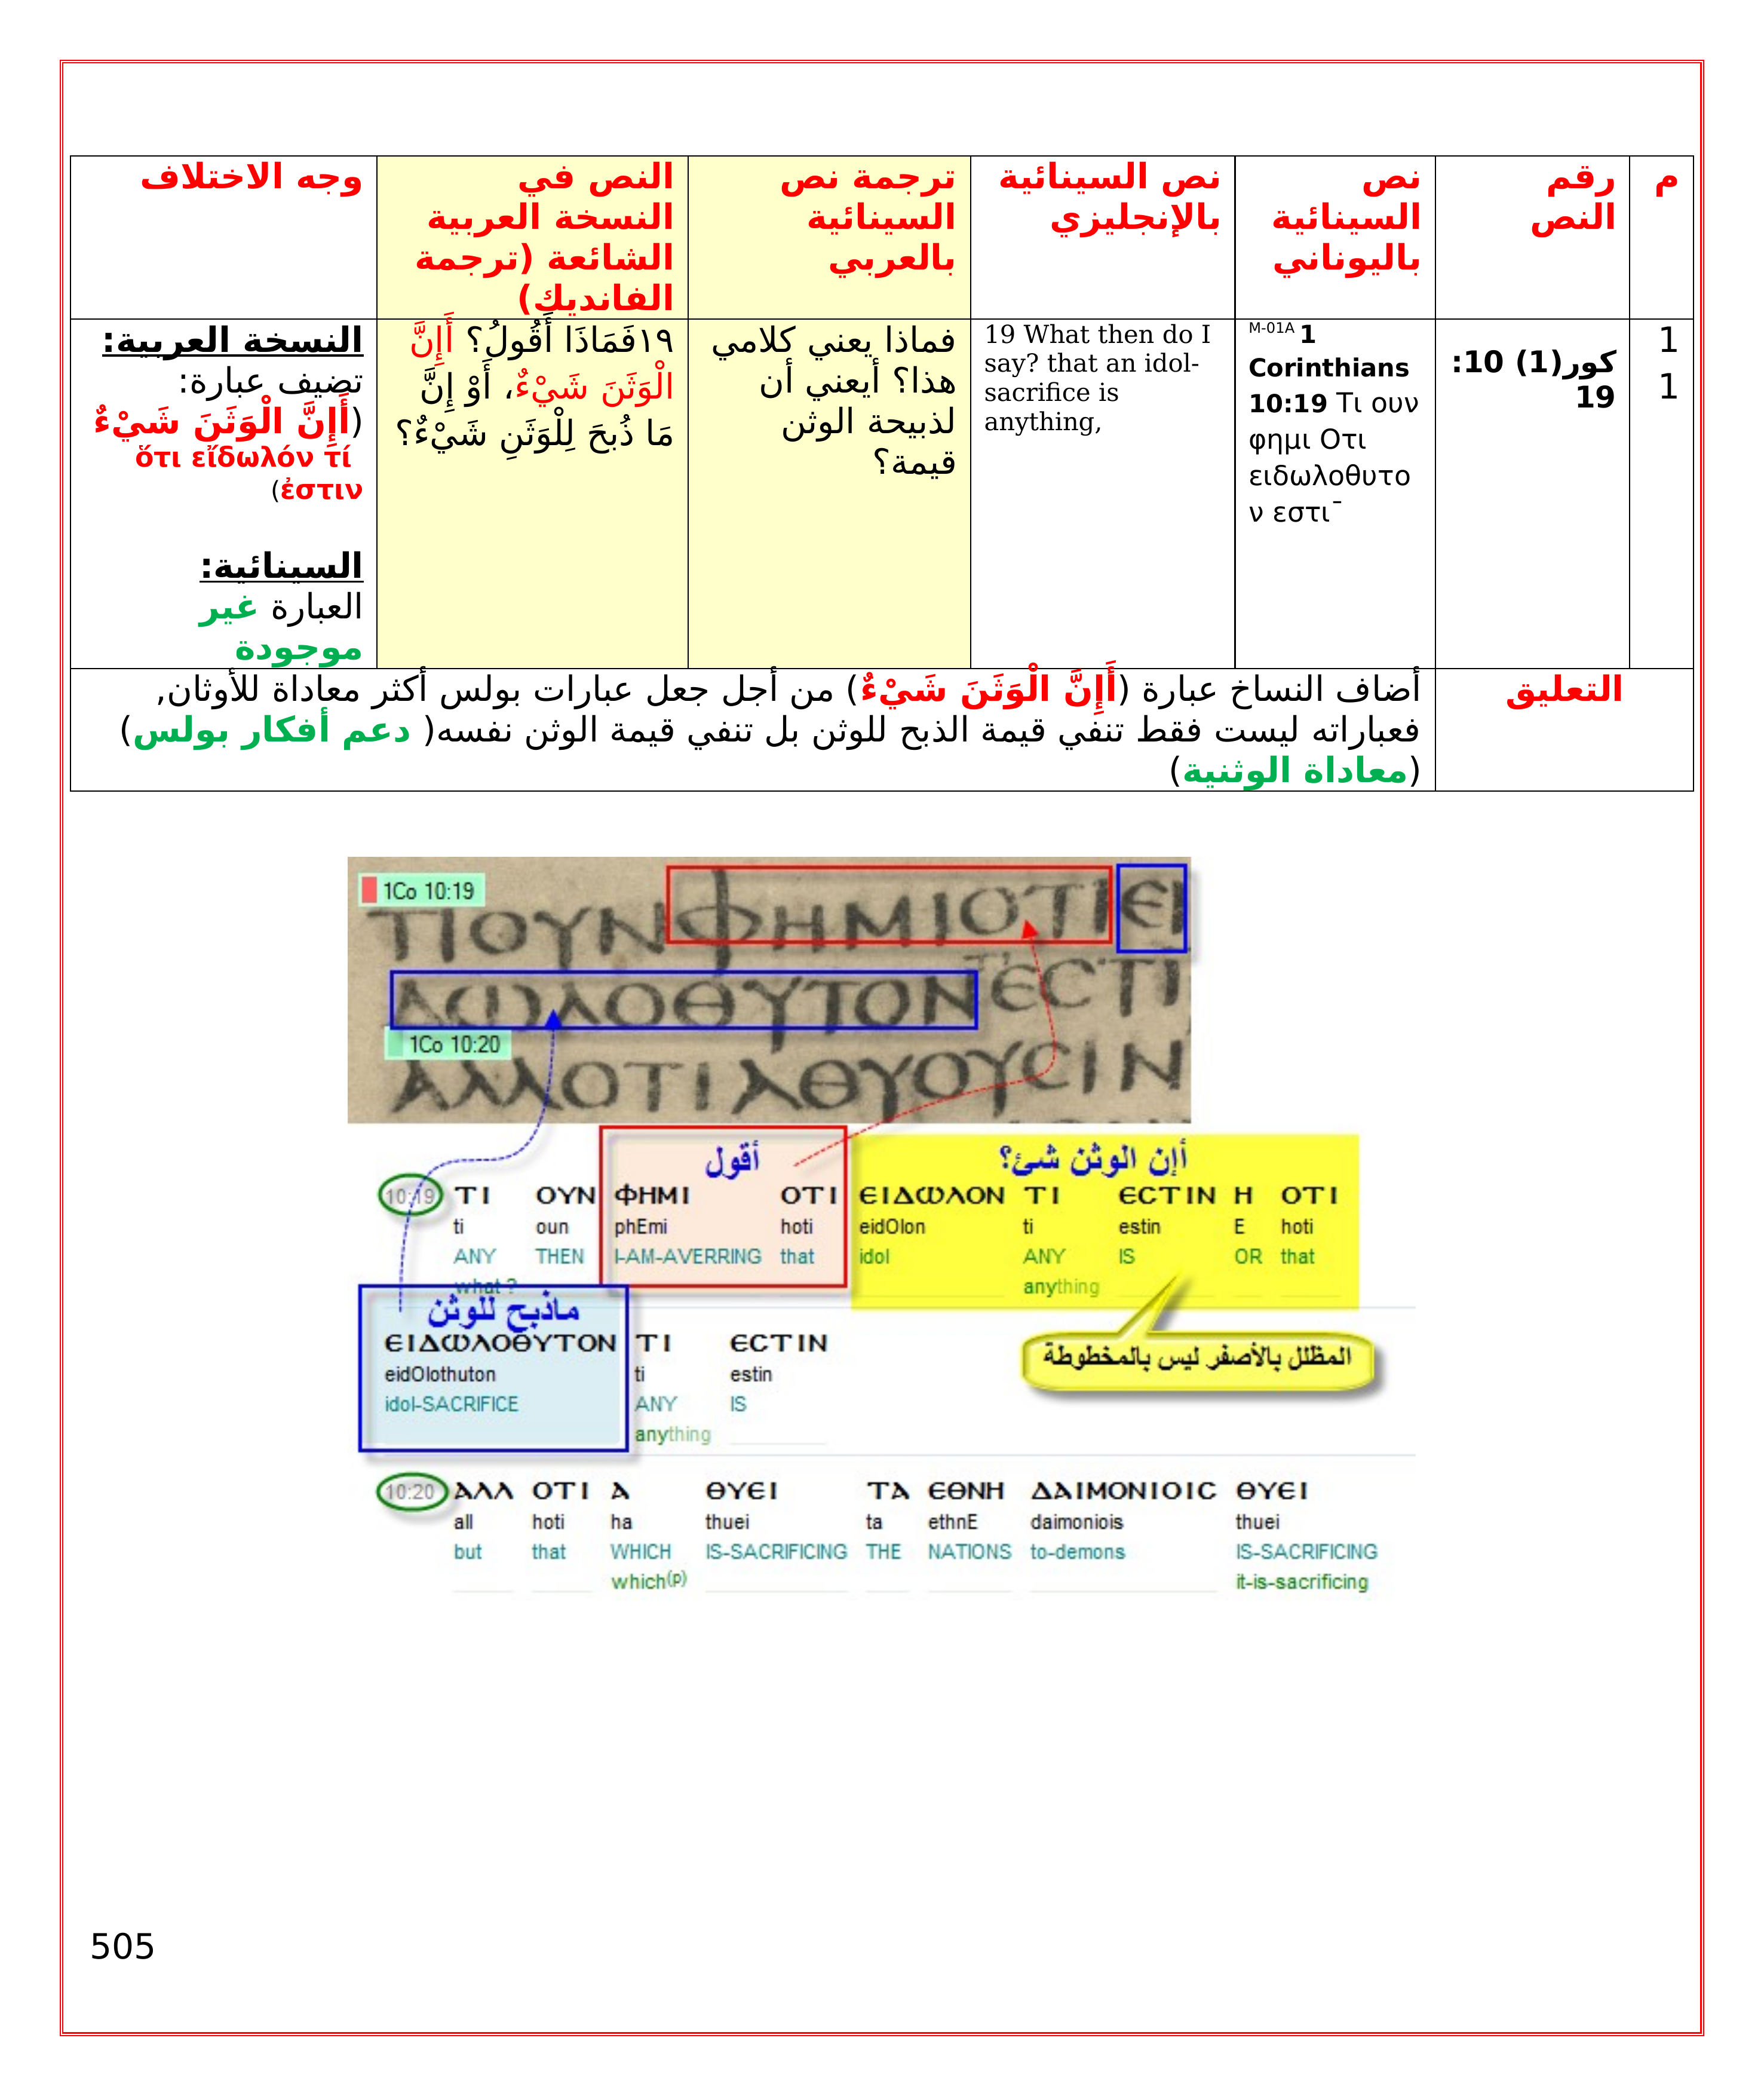 م
رقم
النص
نص
السينائية
باليوناني
نص السينائية
بالإنجليزي
ترجمة نص
السينائية
بالعربي
النص في
النسخة العربية
الشائعة (ترجمة
الفانديك)
وجه الاختلاف
1
1
كور(1) 10:
19
M-01A 1
Corinthians
10:19 Τι ουν
φημι Οτι
ειδωλοθυτο
ν εστι¯
19 What then do I
say? that an idol-
sacrifice is
anything,
فماذا يعني كلامي
هذا؟ أيعني أن
لذبيحة الوثن
قيمة؟
١٩فَمَاذَا أَقُولُ؟ أَإِنَّ
الْوَثَنَ شَيْءٌ، أَوْ إِنَّ
مَا ذُبحَ لِلْوَثَنِ شَيْءٌ؟
النسخة العربية:
تضيف عبارة:
(أَإِنَّ الْوَثَنَ شَيْءٌ
ὅτι εἴδωλόν τί
ἐστιν)
السينائية:
العبارة غير
موجودة
التعليق
أضاف النساخ عبارة (أَإِنَّ الْوَثَنَ شَيْءٌ) من أجل جعل عبارات بولس أكثر معاداة للأوثان,
فعباراته ليست فقط تنفي قيمة الذبح للوثن بل تنفي قيمة الوثن نفسه( دعم أفكار بولس)
(معاداة الوثنية)
1Co 10:19
ΤΙΟΥΝΦΗΜΙΟΤΙΕΙ
ΔΩΛΟΘΥΤΟΝΕCΤΙ
1Co 10:20
ΑΛΛΟΤΙΑΘΥΟΥCΙΝ
أقول
أإن الوثن شئ؟
10:19 ΤΙ ΟΥΝ ΦΗΜΙ ΟΤΙ ΕΙΔΩΛΟΝ ΤΙ ΕCΤΙΝ Η ΟΤΙ
ti oun phEmi hoti eidOlon ti estin E hoti
ANY THEN I-AM-AVERRING that idol ANY IS OR that
what ? anything
ماذبح للوثن
ΕΙΔΩΛΟΘΥΤΟΝ ΤΙ ΕCΤΙΝ
المظلل بالأصفر ليس بالمخطوطة
eidOlothuton ti estin
idol-SACRIFICE ANY IS
anything
10:20 ΑΛΛ ΟΤΙ Α ΘΥΕΙ ΤΑ ΕΘΝΗ ΔΑΙΜΟΝΙΟΙC ΘΥΕΙ
all hoti ha thuei ta ethnE daimoniois thuei
but that WHICH IS-SACRIFICING THE NATIONS to-demons IS-SACRIFICING
which(p) it-is-sacrificing
505